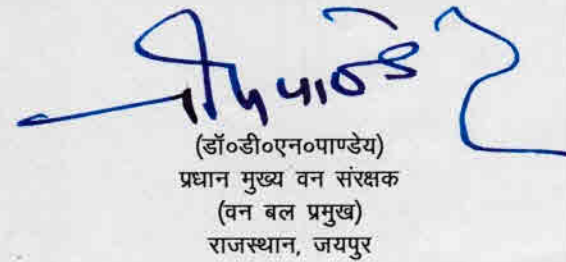 (डॉ०डी०एन०पाण्डेय)
प्रधान मुख्य वन संरक्षक
(वन बल प्रमुख)
राजस्थान, जयपुर